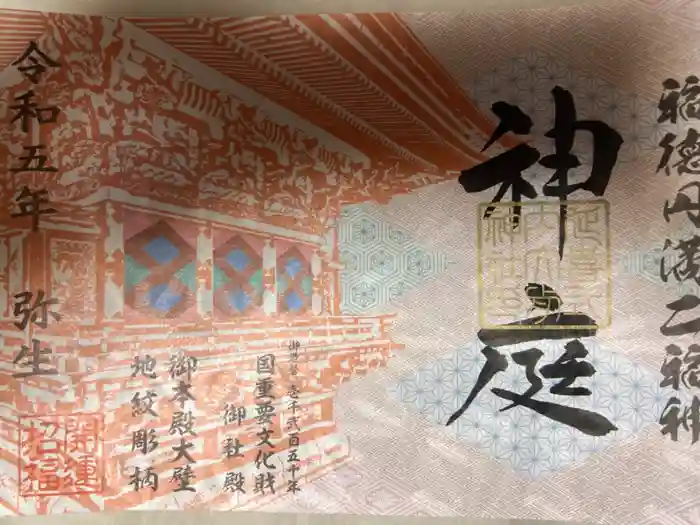 福徳円満二福神
神庭
御鎮普 壱千弐百五十年
国重要文化財
御社殿
御本殿大壁
地紋彫柄
令和五年 弥生
開運
招福